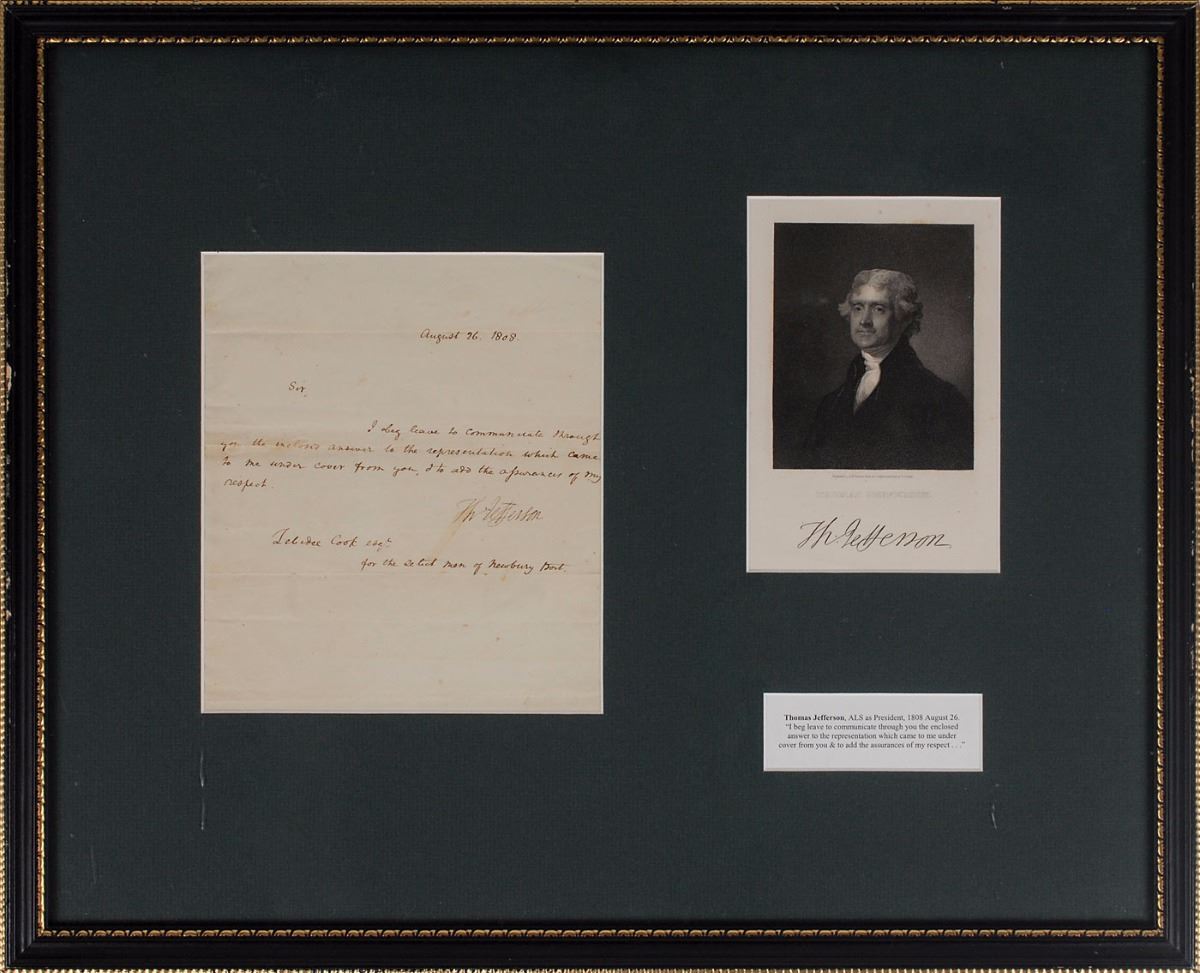 August 26. 1808.
Sir,
I beg leave to communicate through
you the inclosed answer to the representation which came
to me under cover from you, & to add the assurances of my
respect.
Th: Jefferson
Zebedee Cook esqr.
for the Select men of Newbury Port.
THOMAS JEFFERSON.
Th. Jefferson
Thomas Jefferson, ALS as President, 1808 August 26.
"I beg leave to communicate through you the enclosed
answer to the representation which came to me under
cover from you & to add the assurances of my respect . . ."